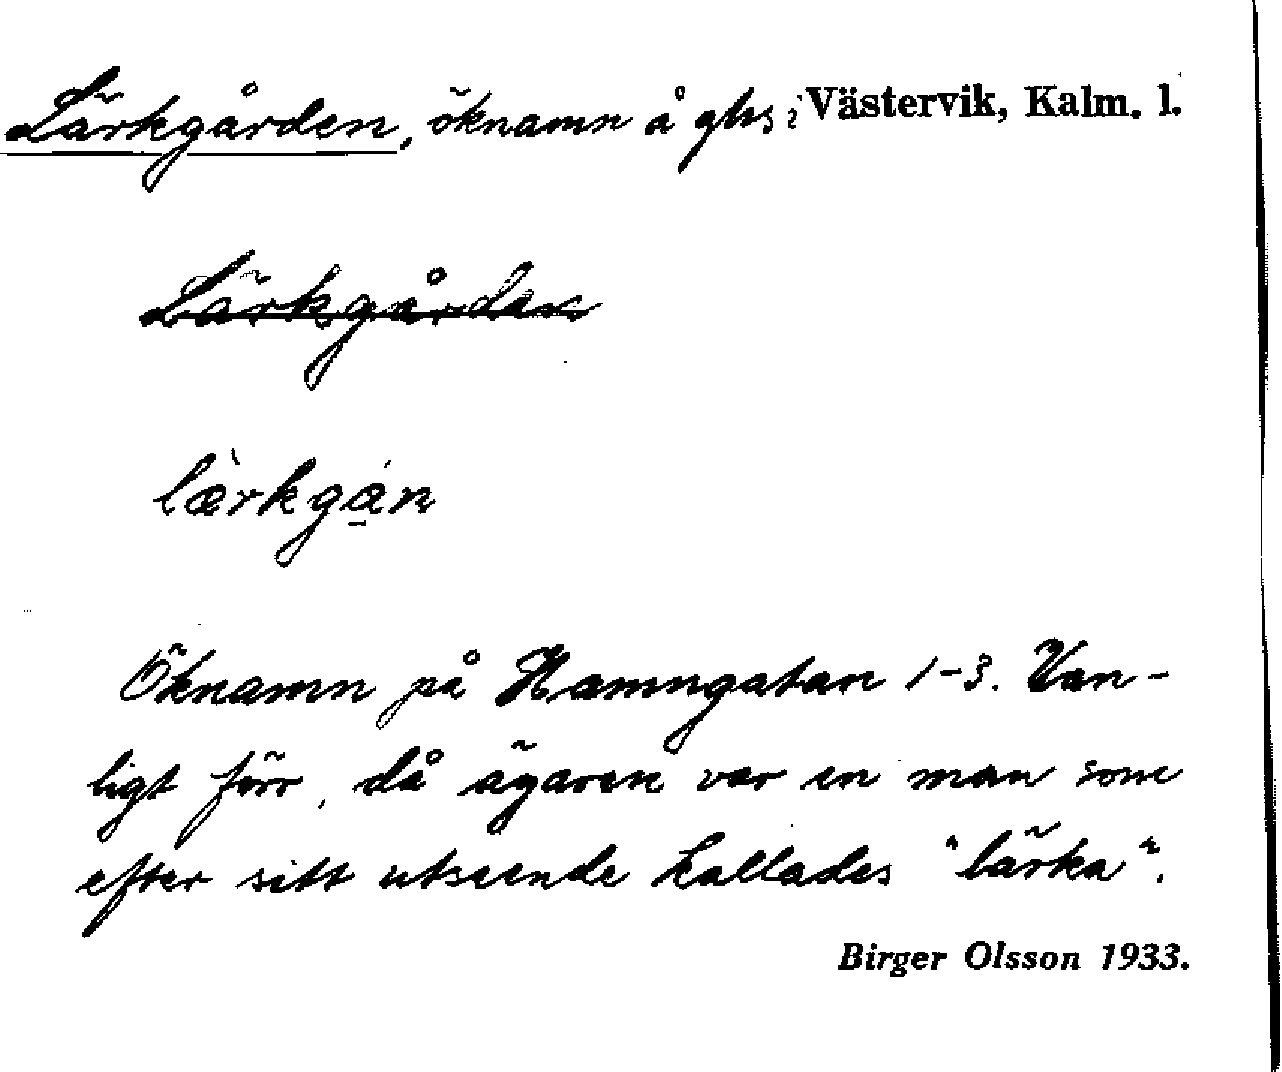 Lärkgården, öknamn å ghs i Västervik, Kalm. l.
Lärkgården
lærkgan
Öknamn på Hamngatan 1-3. Van-
ligt förr, då ägaren var en man som
efter sitt utseende kallades "lärka".
Birger Olsson 1933.